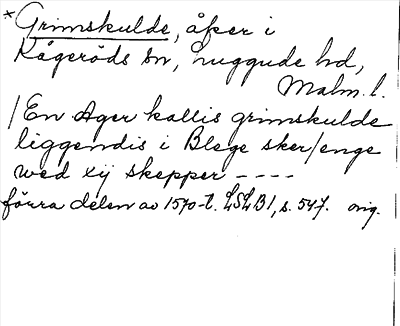 *Grimskulde, åker i
Kågeröds sn, Luggude hd,
Malm. l.
/En Ager kallis grimskulde
liggendis i Blege sker/enge
wed xij skepper ----
förra delen av 1570-t. LSLB1, s. 547. orig.